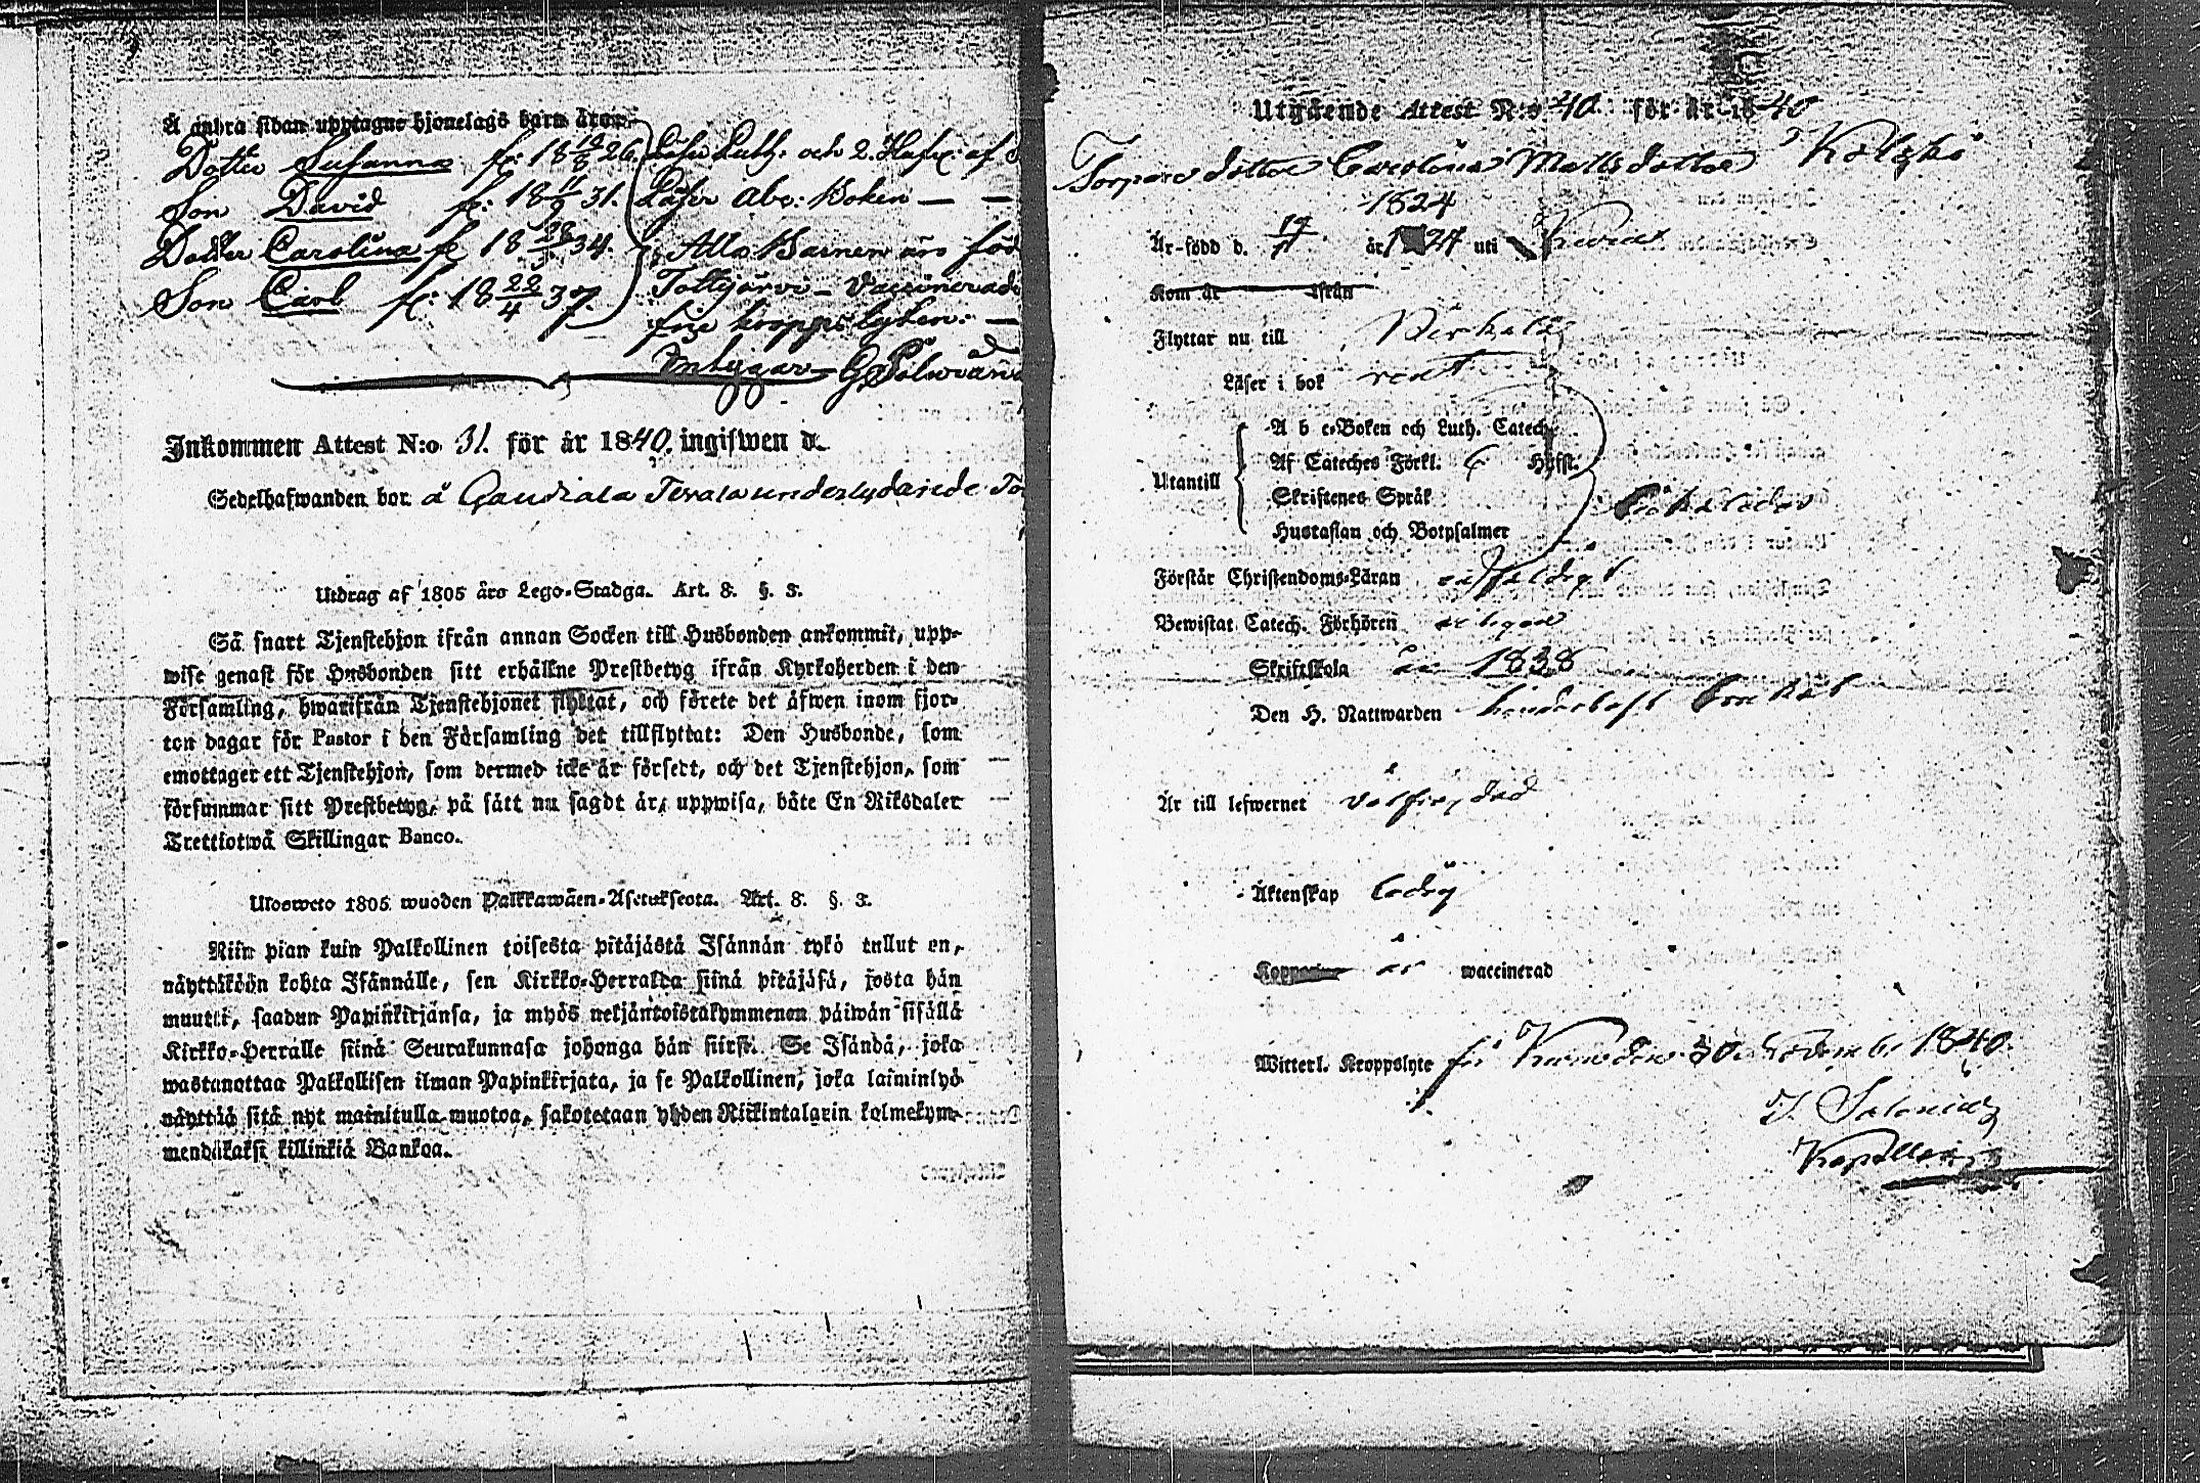 Å andra sidan upptagne hjonelags barn äro:
Dotter Susanna f: 18 26. Läser Luth: och 2. Hufst: af
Son David f: 18 31. Läser Abc: Boken —
Dotter Carolina f 18 28 34. Alla Barnen äro föd
Son Carl f: 18 22/4 37. Tottijärvi – Vaccinerade
frie kroppslyten. —
Intygar
Inkommen Attest N:o 31. för år 1840. ingifwen d.
Sedelhafwanden bor å underlydande
Utdrag af 1805 års Lego-Stadga. Art. 8. §. 3.
Så snart Tjenstehjon ifrån annan Socken till Husbonden ankommit, upp-
wise genast för Husbonden sitt erhållne Prestbetyg ifrån Kyrkoherden i den
Församling, hwarifrån Tjenstehjonet flyttat, och förete det äfwen inom fjor-
ton dagar för Pastor i den Församling det tillflyttat: Den Husbonde, som
emottager ett Tjenstehjon, som dermed icke är försedt, och det Tjenstehjon, som
försummar sitt Prestbetyg, på sätt nu sagdt är, uppwisa, böte En Riksdaler
Trettiotwå Skillingar Banco.
Ulosweto 1805 wuoden Palkkawäen-Asetuksesta. Art. 8. §. 3.
Niin pian kuin Palkollinen toisesta pitäjästä Isännän tykö tullut on,
näyttäköön kohta Isännälle, sen Kirkko-Herralda siinä pitäjäsä, josta hän
muutti, saadun Papinkirjänsa, ja myös neljäntoistakymmenen päiwän sisällä
Kirkko-Herralle siinä Seurakunnasa johonga hän siirsi. Se Isändä, joka
wastanottaa Palkollisen ilman Papinkirjata, ja se Palkollinen, joka laiminlyö
näyttää sitä nyt mainitulla muotoa, sakotetaan yhden Riikintalarin kolmekym-
mendäkaksi killinkiä Bankoa.
Utgående Attest N:o 40 för år 1840
Torpare dotter Carolina Mattsdotter
1824
Är född d. 19 år 24 uti
Kom år ifrån
Flyttar nu till
Läser i bok rent
Utantill
A b c-Boken och Luth. Catech.
Af Cateches Förkl. 6 Hufst.
Skriftenes Språk
Hustaflan och Botpsalmer
Förstår Christendoms-Läran enfaldigt
Bewistat Catech. Förhören årligen
Skriftskola år 1838
Den H. Nattwarden
Är till lefwernet välfrejdad
Äktenskap ledig
Koppor är waccinerad
Witterl. Kroppslyte fri den 30 November 1840.